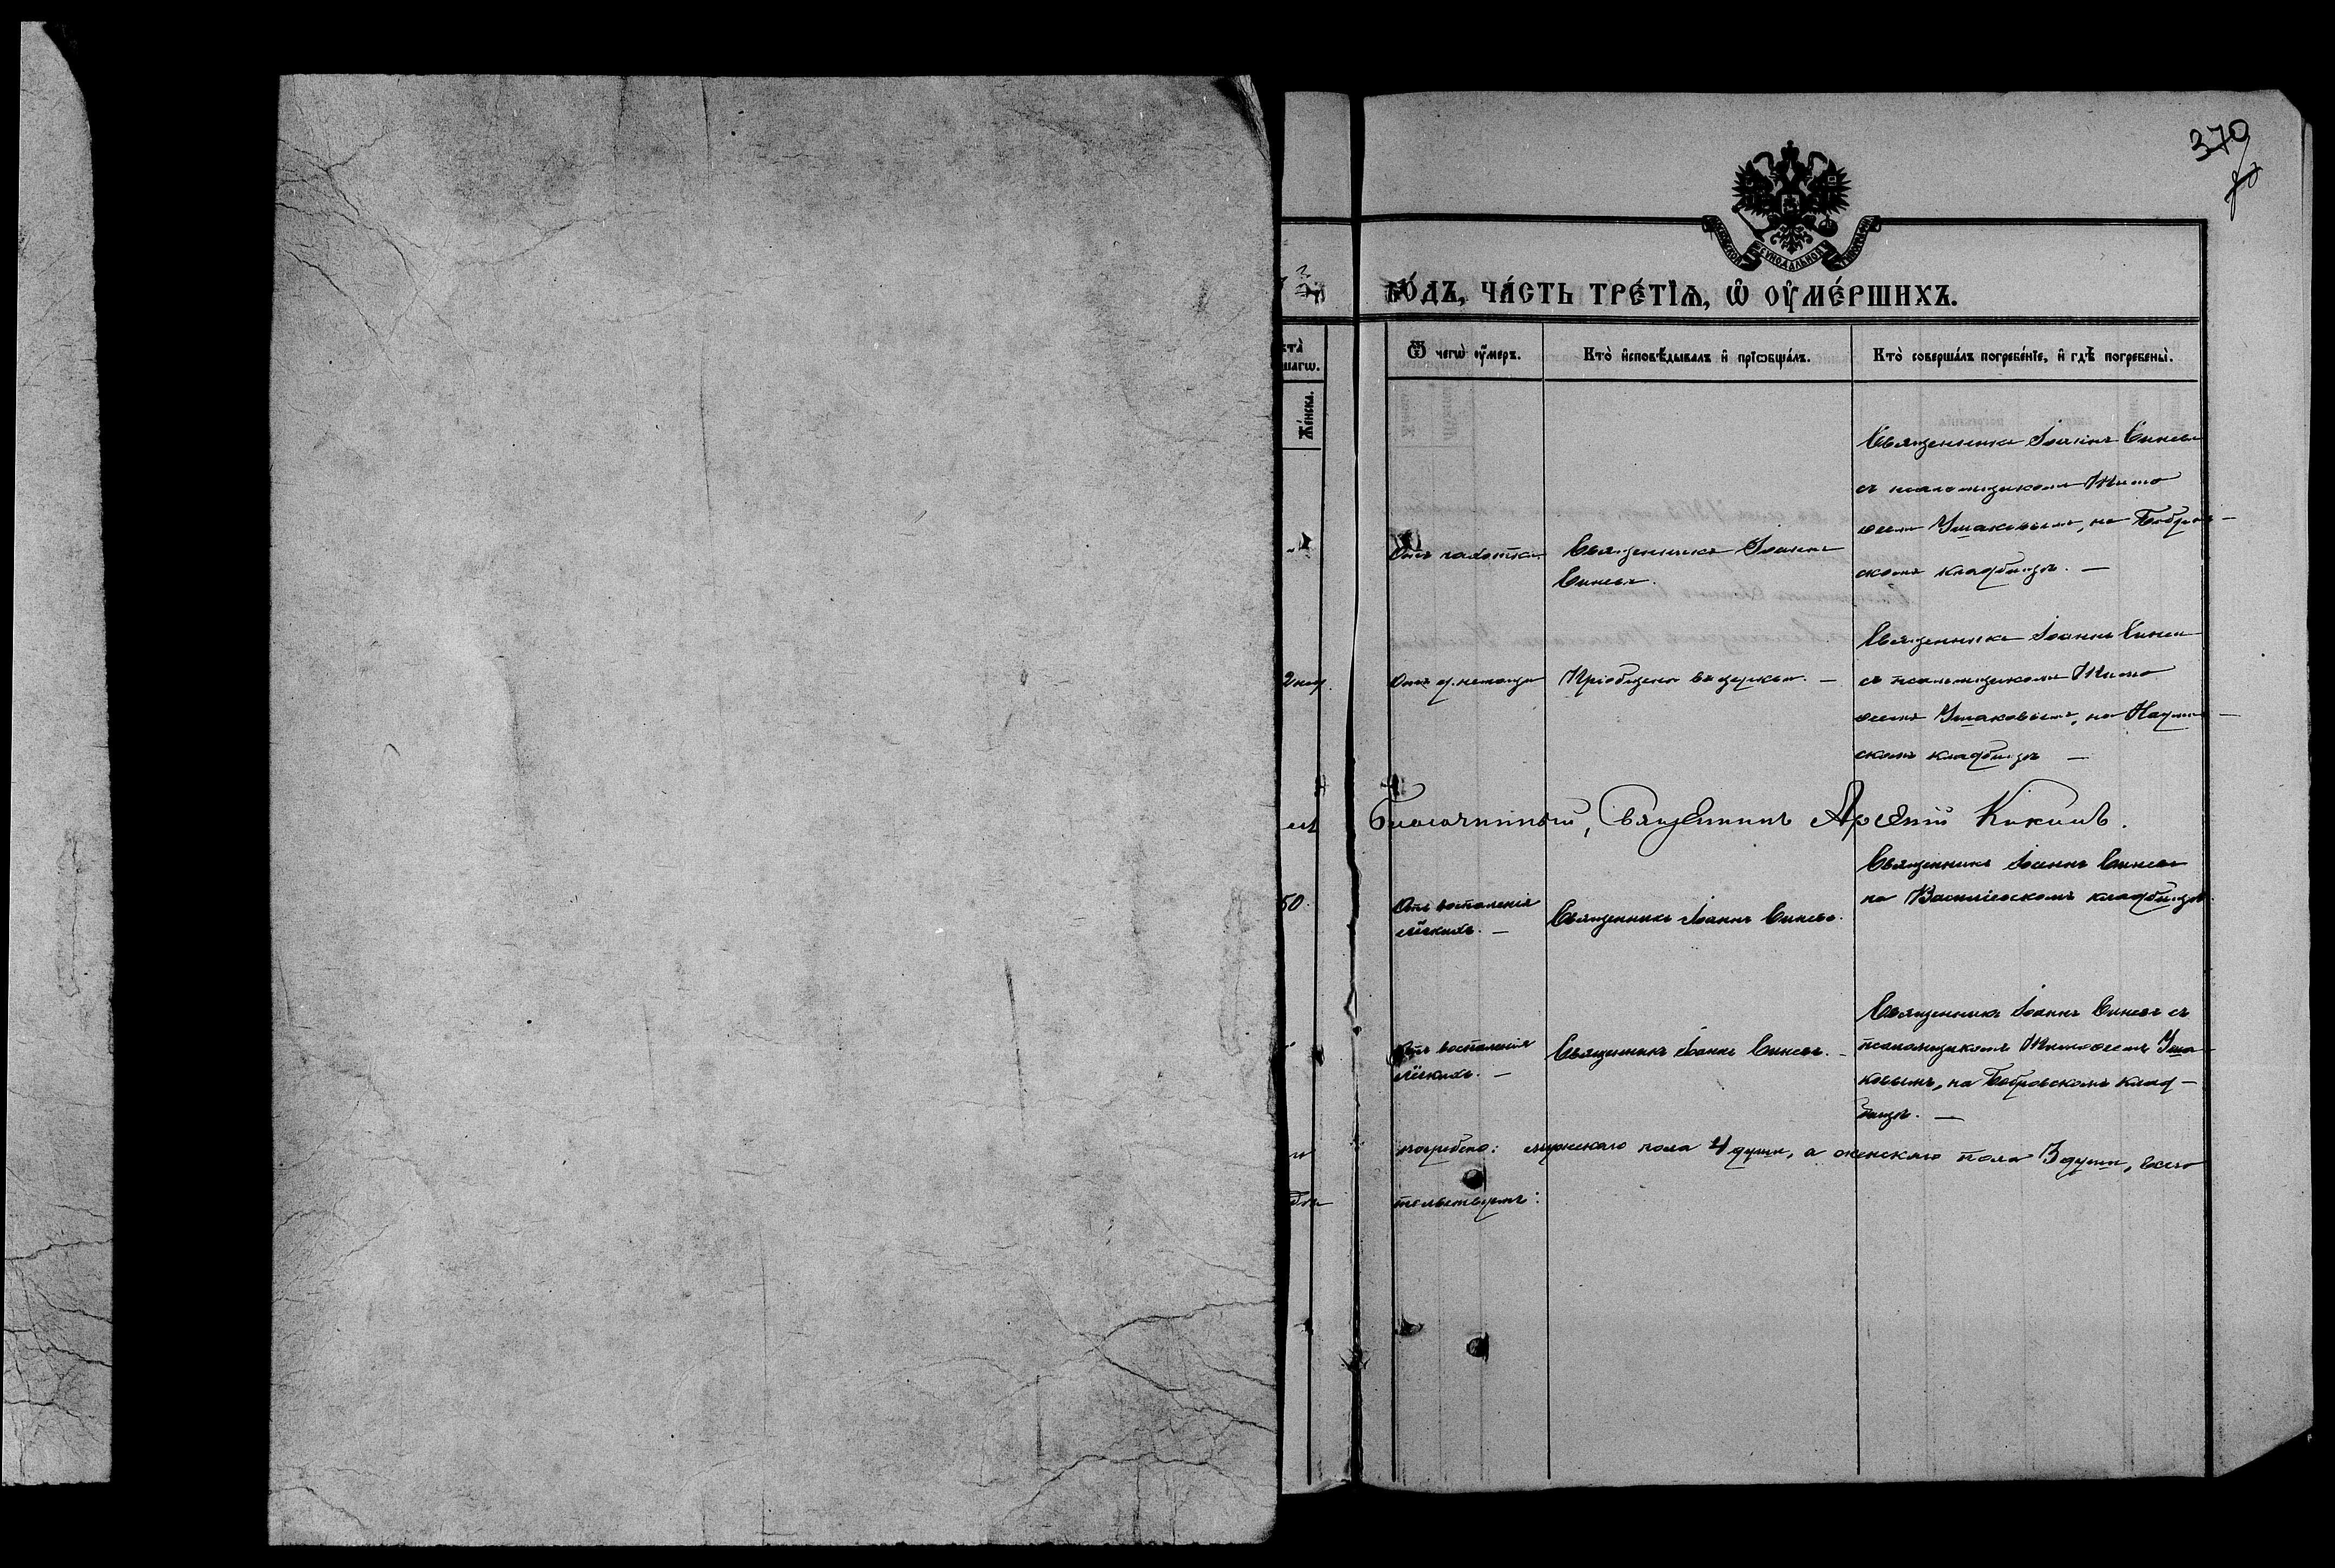 379
МОСКОВСКОЙ СѴНОДАЛЬНОЙ ТИПОГРАФІИ
го́дъ, ча́сть тре́тїѧ, ѡ҆ ᲂу҆ме́ршихъ.
Ѿ чегѡ̀ ᲂу҆́меръ.
Кто̀ и҆сповѣ́дывалъ и҆ прїѡбща́лъ.
Кто̀ соверша́лъ погребе́нїе, и҆ гдѣ̀ погребены̀.
Же́нска.
Отъ чахотки
Священникъ Іоаннъ
Синевъ.
Священникъ Іоаннъ Синевъ
съ псаломщикомъ Тимо
ѳеемъ Ушаковымъ, на Бобров-
скомъ кладбищѣ. —
2 нед.
Отъ
Пріобщена въ церкви. —
Священникъ Іоаннъ Синевъ
съ псаломщикомъ Тимо
ѳеемъ Ушаковымъ, на
скомъ кладбищѣ —
Благочинный, Священникъ Арсеній
50
Отъ воспаленія
лёгкихъ. —
Священникъ Іоаннъ Синевъ.
Священникъ Іоаннъ Синевъ
на кладбищѣ
Отъ воспаленія
лёгкихъ. —
Священникъ Іоаннъ Синевъ. —
Священникъ Іоаннъ Синевъ съ
псаломщикомъ Тимоѳеемъ Уша-
ковымъ, на Бобровскомъ клад-
бищѣ. —
погребено: мужескаго пола 4 души, а женскаго пола 3 души, всего
тельствуемъ: